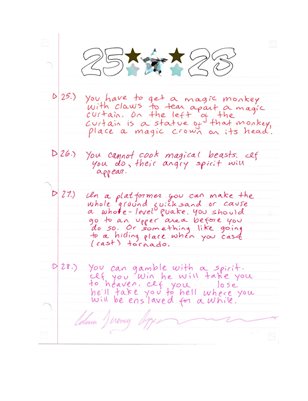 25 28
25.) You have to get a magic monkey
with claws to tear apart a magic
curtain. On the left of the
curtain is a statue of that monkey,
place a magic crown on its head!
26.) You cannot cook magical beasts. If
you do, their angry spirit will
appear.
27.) In a platformer you can make the
whole ground quicksand or cause
a whole-level quake. You should
go to an upper area before you
do so. Or something like going
to a hiding place when you case
(cast) tornado.
28.) You can gamble with a spirit.
If you win he will take you
to heaven. If you lose
he'll take you to hell where you
will be enslaved for a while.